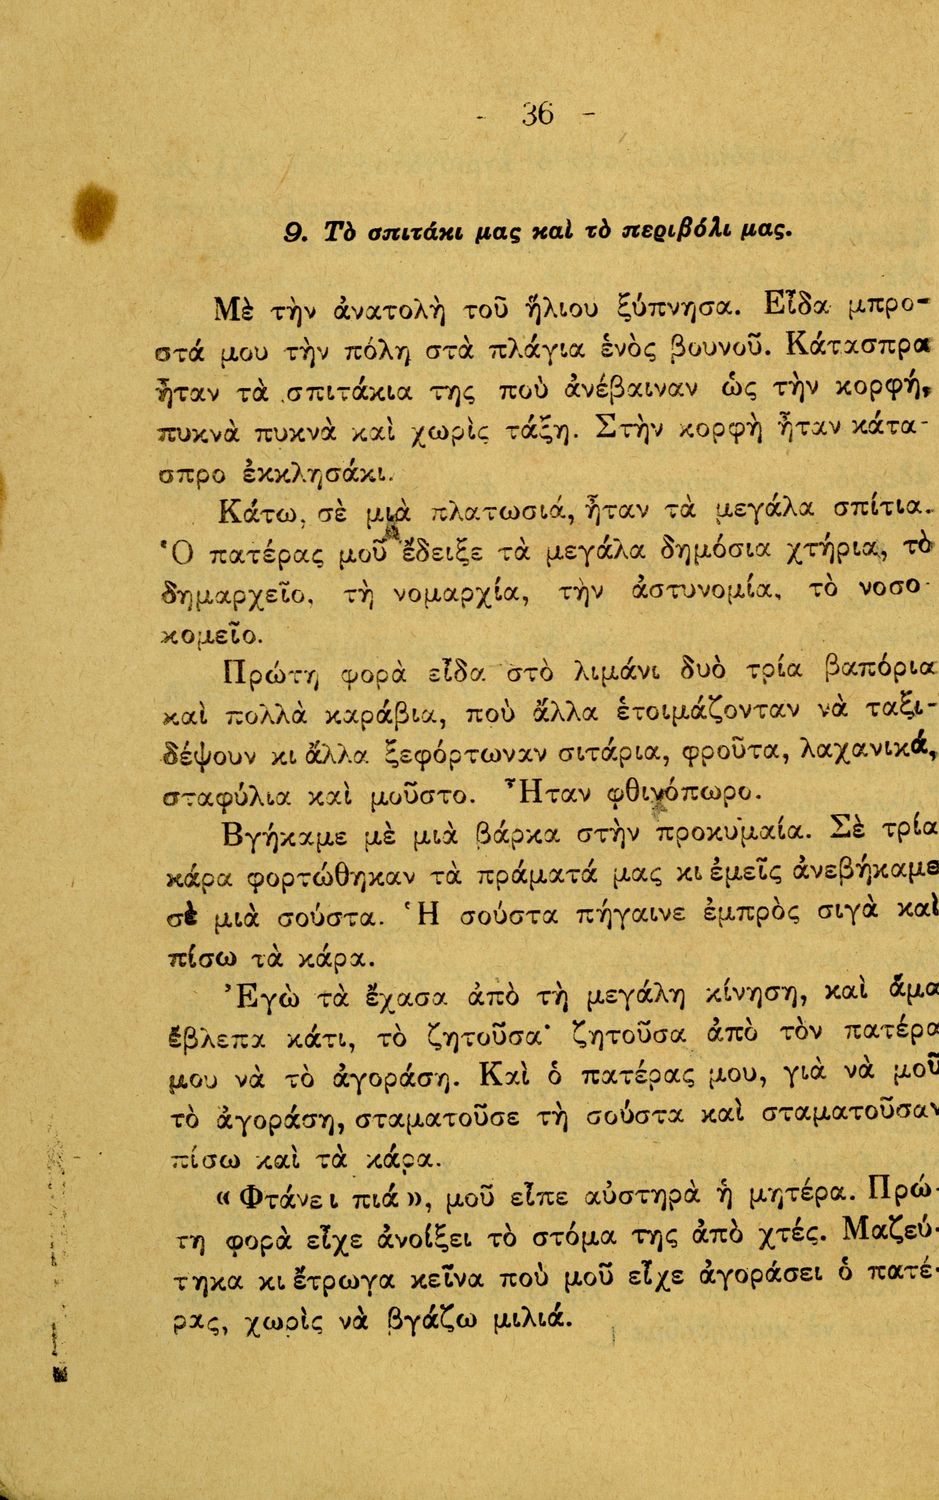 - 36 -
9. Τὸ σπιτάκι μας καὶ τὸ περιβόλι μας.
Μὲ τὴν ἀνατολὴ τοῦ ἥλιου ξύπνησα. Εἶδα μπρο-
στά μου τὴν πόλη στὰ πλάγια ἑνὸς βουνοῦ. Κάτασπρα
ἦταν τὰ σπιτάκια της ποὺ ἀνέβαιναν ὡς τὴν κορφή,
πυκνὰ πυκνὰ καὶ χωρὶς τάξη. Στὴν κορφὴ ἦταν κάτα-
σπρο ἐκκλησάκι.
Κάτω, σὲ μιὰ πλατωσιά, ἦταν τὰ μεγάλα σπίτια.
Ὁ πατέρας μοῦ ἔδειξε τὰ μεγάλα δημόσια χτήρια, τὸ
δημαρχεῖο, τὴ νομαρχία, τὴν ἀστυνομία, τὸ νοσο-
κομεῖο.
Πρώτη φορὰ εἶδα στὸ λιμάνι δυὸ τρία βαπόρια
καὶ πολλὰ καράβια, ποὺ ἄλλα ἑτοιμάζονταν νὰ ταξι-
δέψουν κι ἄλλα ξεφόρτωναν σιτάρια, φροῦτα, λαχανικά,
σταφύλια καὶ μοῦστο. Ἦταν φθινόπωρο.
Βγήκαμε μὲ μιὰ βάρκα στὴν προκυμαία. Σὲ τρία
κάρα φορτώθηκαν τὰ πράματά μας κι ἐμεῖς ἀνεβήκαμε
σὲ μιὰ σούστα. Ἡ σούστα πήγαινε ἐμπρὸς σιγὰ καὶ
πίσω τὰ κάρα.
Ἐγὼ τὰ ἔχασα ἀπὸ τὴ μεγάλη κίνηση, καὶ ἅμα
ἔβλεπα κάτι, τὸ ζητοῦσα· ζητοῦσα ἀπὸ τὸν πατέρα
μου νὰ τὸ ἀγοράση. Καὶ ὁ πατέρας μου, γιὰ νὰ μοῦ
τὸ ἀγοράση, σταματοῦσε τὴ σούστα καὶ σταματοῦσαν
πίσω καὶ τὰ κάρα.
«Φτάνει πιά», μοῦ εἶπε αὐστηρὰ ἡ μητέρα. Πρώ-
τη φορὰ εἶχε ἀνοίξει τὸ στόμα της ἀπὸ χτές. Μαζεύ-
τηκα κι ἔτρωγα κεῖνα ποὺ μοῦ εἶχε ἀγοράσει ὁ πατέ-
ρας, χωρὶς νὰ βγάζω μιλιά.